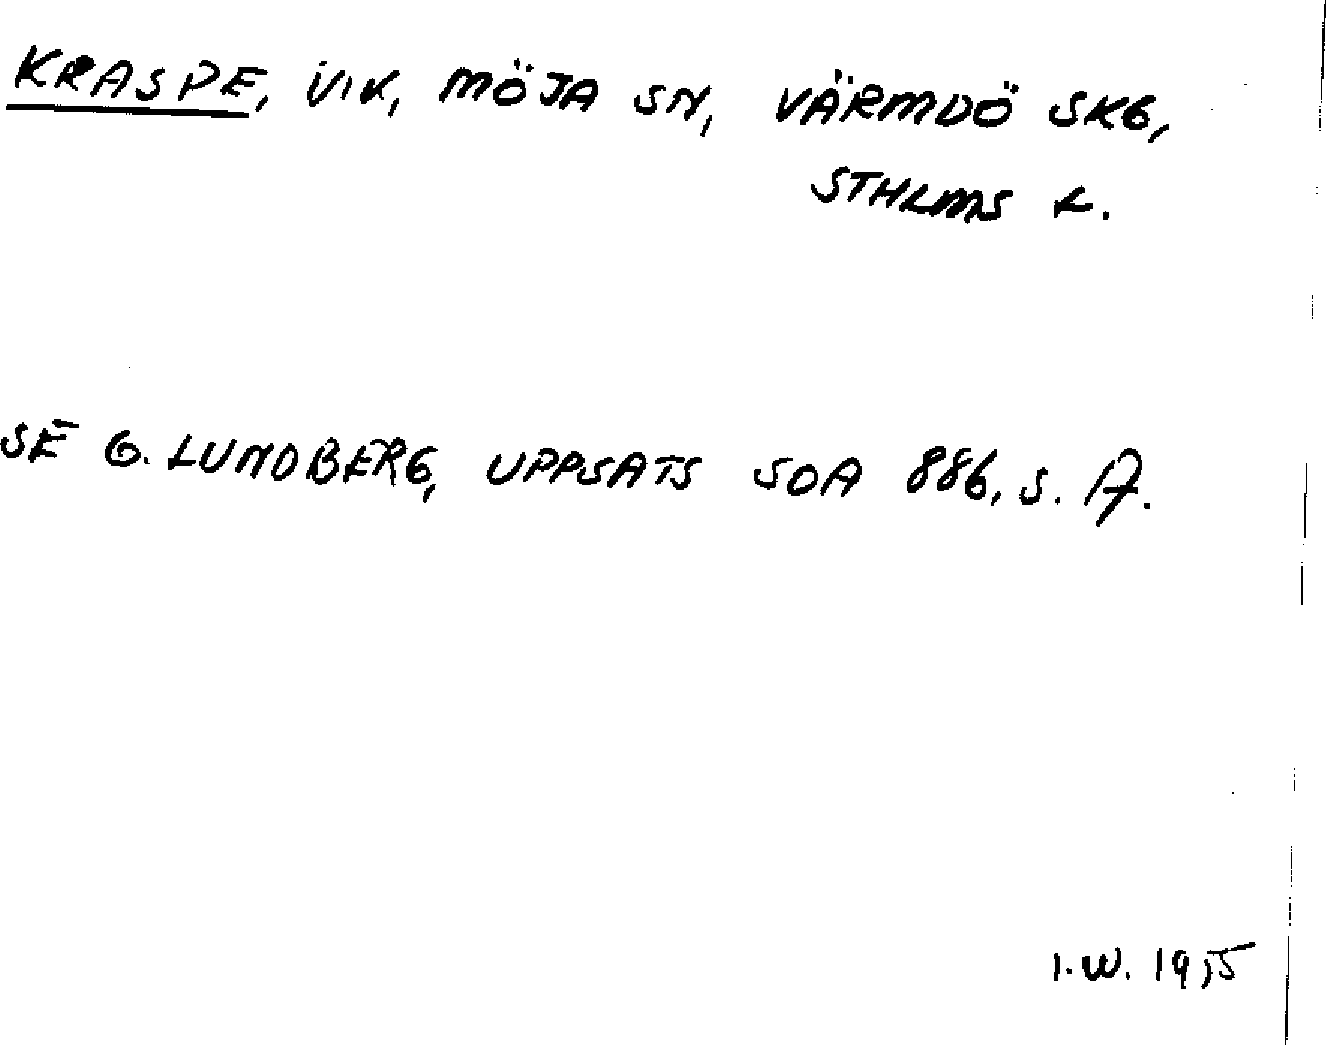 KRASPE, VIK, MÖJA SN, VÄRMDÖ SKG,
STHLMS L.
SE G. LUNDBERG, UPPSATS SOA 886, S.
I.W. 1955